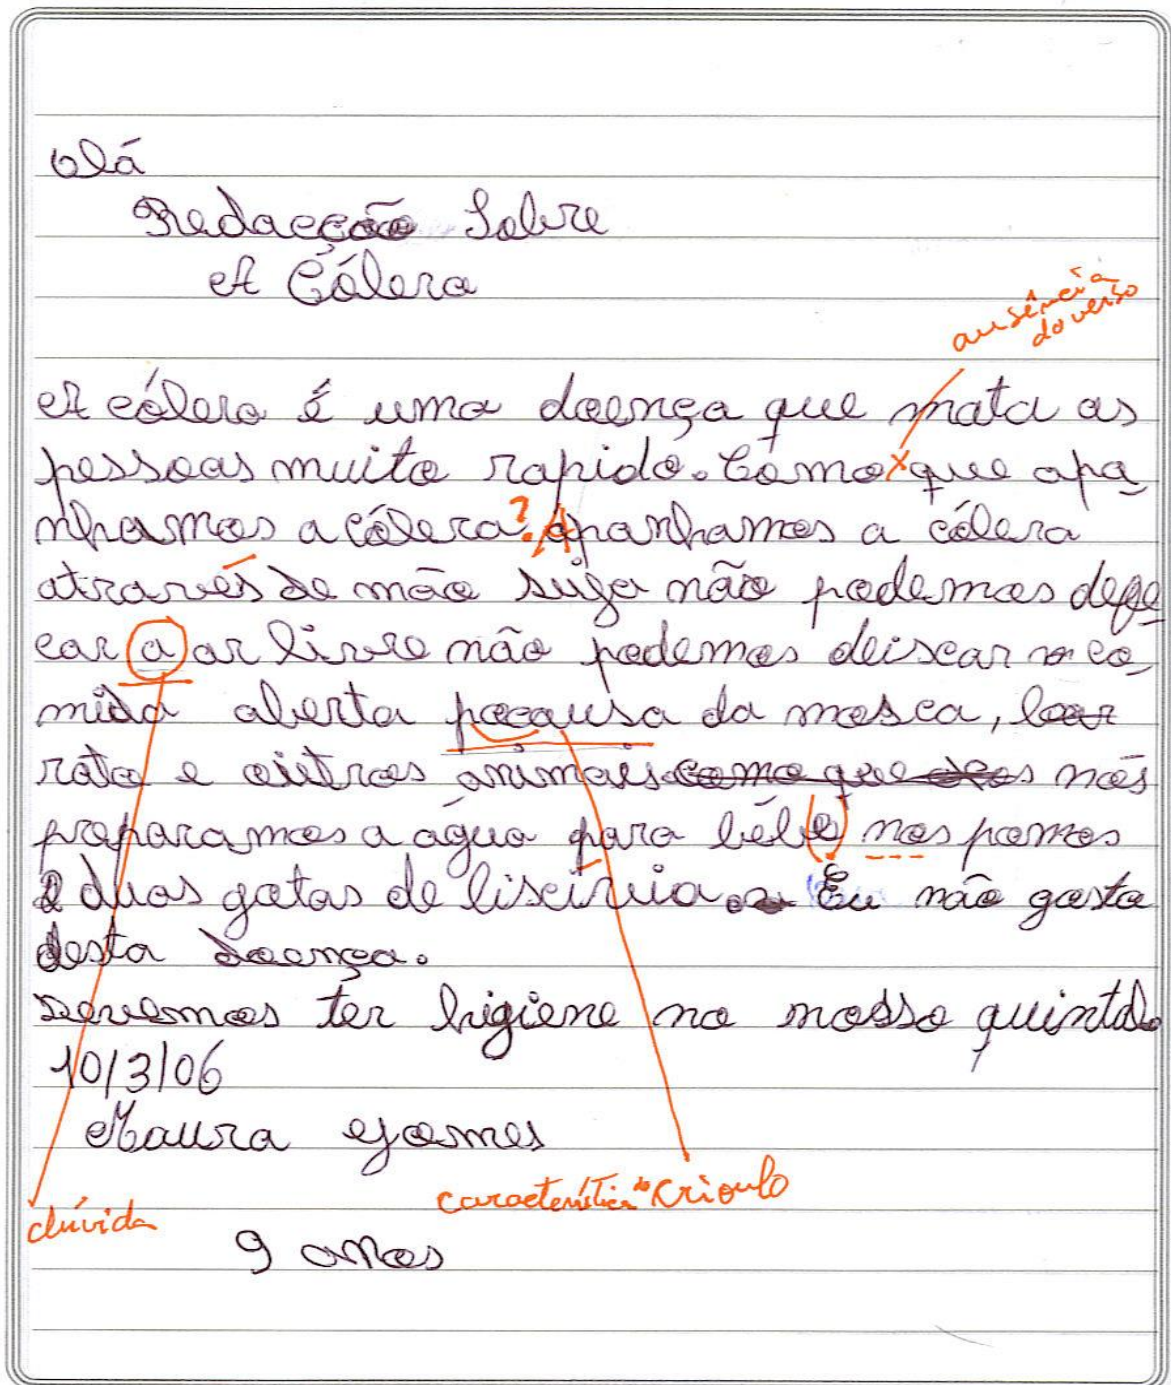 olá
Redacção Sobre
A Cólera
ausência
do verso
A cólera é uma doença que mata as
pessoas muito rapido. Como x que apa
nhamos a cólera? Apanhamos a cólera
através de mão suja não podemos defe
car a ar livre não podemos deiscar a co
mida aberta pocausa da mosca,
rato e outros animais como que nós
preparamos a água para bêbe nos pomos
2 duas gotas de liscívia. Eu não gosto
desta doença.
Devemos ter higiene no nosso quintal.
10/3/06
Maura Gomes
característica do Crioulo
dúvida
9 anos